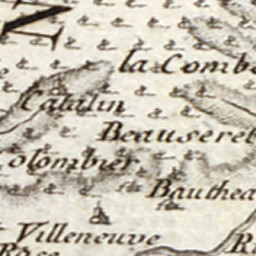 la Combe
Catalin
Beauseret
Colombier
Bauthea
Villeneuve